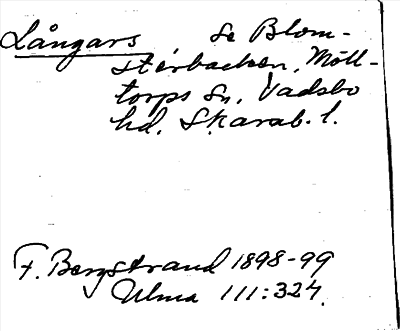 Långars se Blom-
sterbacken, Möll-
torps sn, Vadsbo
hd, Skarab. l.
F. Bergstrand 1898-99
Ulma 111:324.